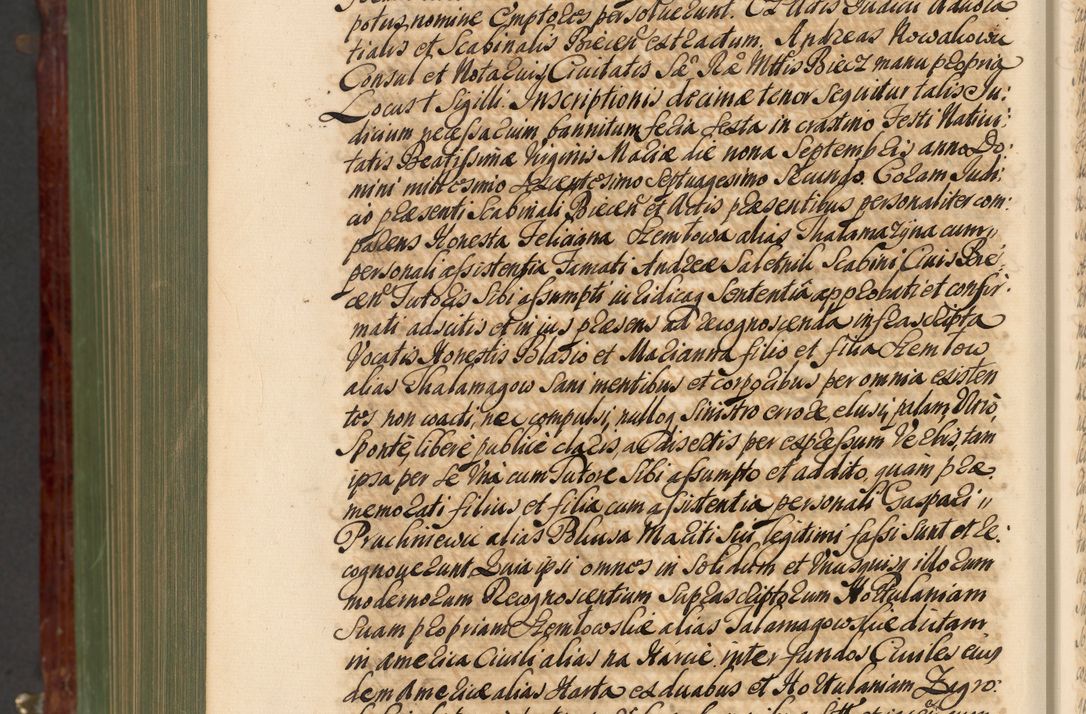 potus, nomine Emptores persoluerunt. Ex Actis Judicii Aduoca
tialis et Scabinalis Biecen est ractum. Andreas Nowakowic
Consul et Notarius Ciuitatis Sae Rae Mttis Biecz manu propria
Locus + Sigilli. Inscriptionis decimæ tenor sequitur talis Ju:
dicium necessarium bannitum feria sexta in crastino Festi Natiui:
tatis Beatissimæ Virginis Mariæ die nona Septembris anno Do:
mini millesimo sexcentesimo septuagesimo secundo. Coram Judi:
cio præsenti Scabinali Biecen et Actis præsentibus personaliter com:
parens Honesta Feliciana Hemlowa alias Thalamazyna cum
personali assistentia Famati Andreæ Saletnik Scabini Ciuis Bie:
cen Tutoris sibi assumpti iuridicaq sententia approbati et confir:
mati adscitis et in ius præsens ad recognoscenda infrascripta
Vocatis Honestis Blasio et Marianna filio et filia Hemlow
alias Thalamagow sani mentibus et corporibus per omnia existen
tes non coacti, nec compulsi, nulloq sinistro errore elusi, palam Vltro
sponte, libere publice claris, ac disertis per expressum Verbis, tam
ipsa per se Vna cum Tutore sibi assumpto et addito, quam præ
memorati filius et filia cum assistentia personali Gaspari
Pruchniewic alias Blusa Mariti sui legitimi fassi sunt et re:
cognouerunt Quia ipsi omnes in solidum et Vnusquisq illorum
modernorum Recognoscentium suprascriptorum Hortulaniam
suam propriam Hemlowskie alias Talamagowskie dictam
in America Ciuili alias na Harcie inter fundos Ciuiles eius
dem Americæ alias Harta ex duabus et Hortulaniam Zagro: